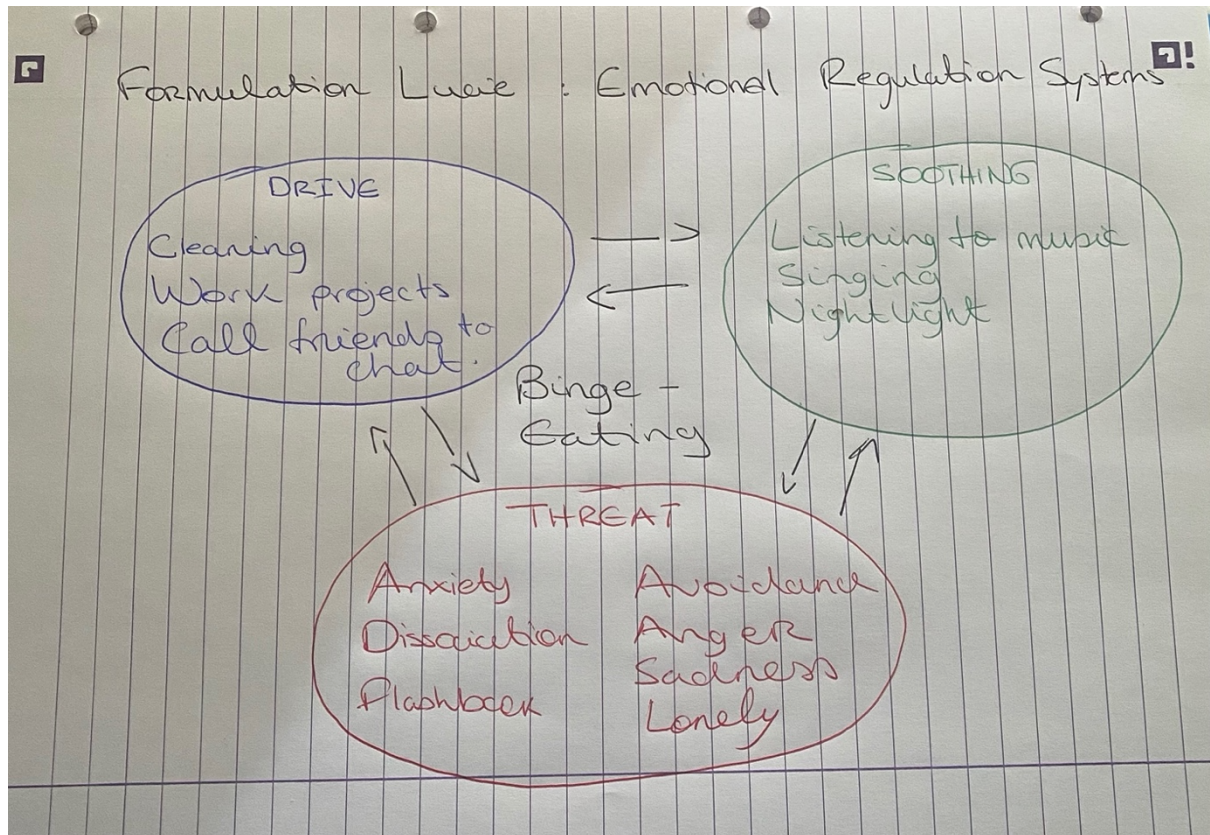 Formulation Lucie : Emotional Regulation Systems
DRIVE
Cleaning
Work projects
Call friends to
chat.
SOOTHING
Listening to music
Singing
Nightlight
Binge -
Eating
THREAT
Anxiety
Dissociation
Flashback
Avoidance
Anger
Sadness
Lonely